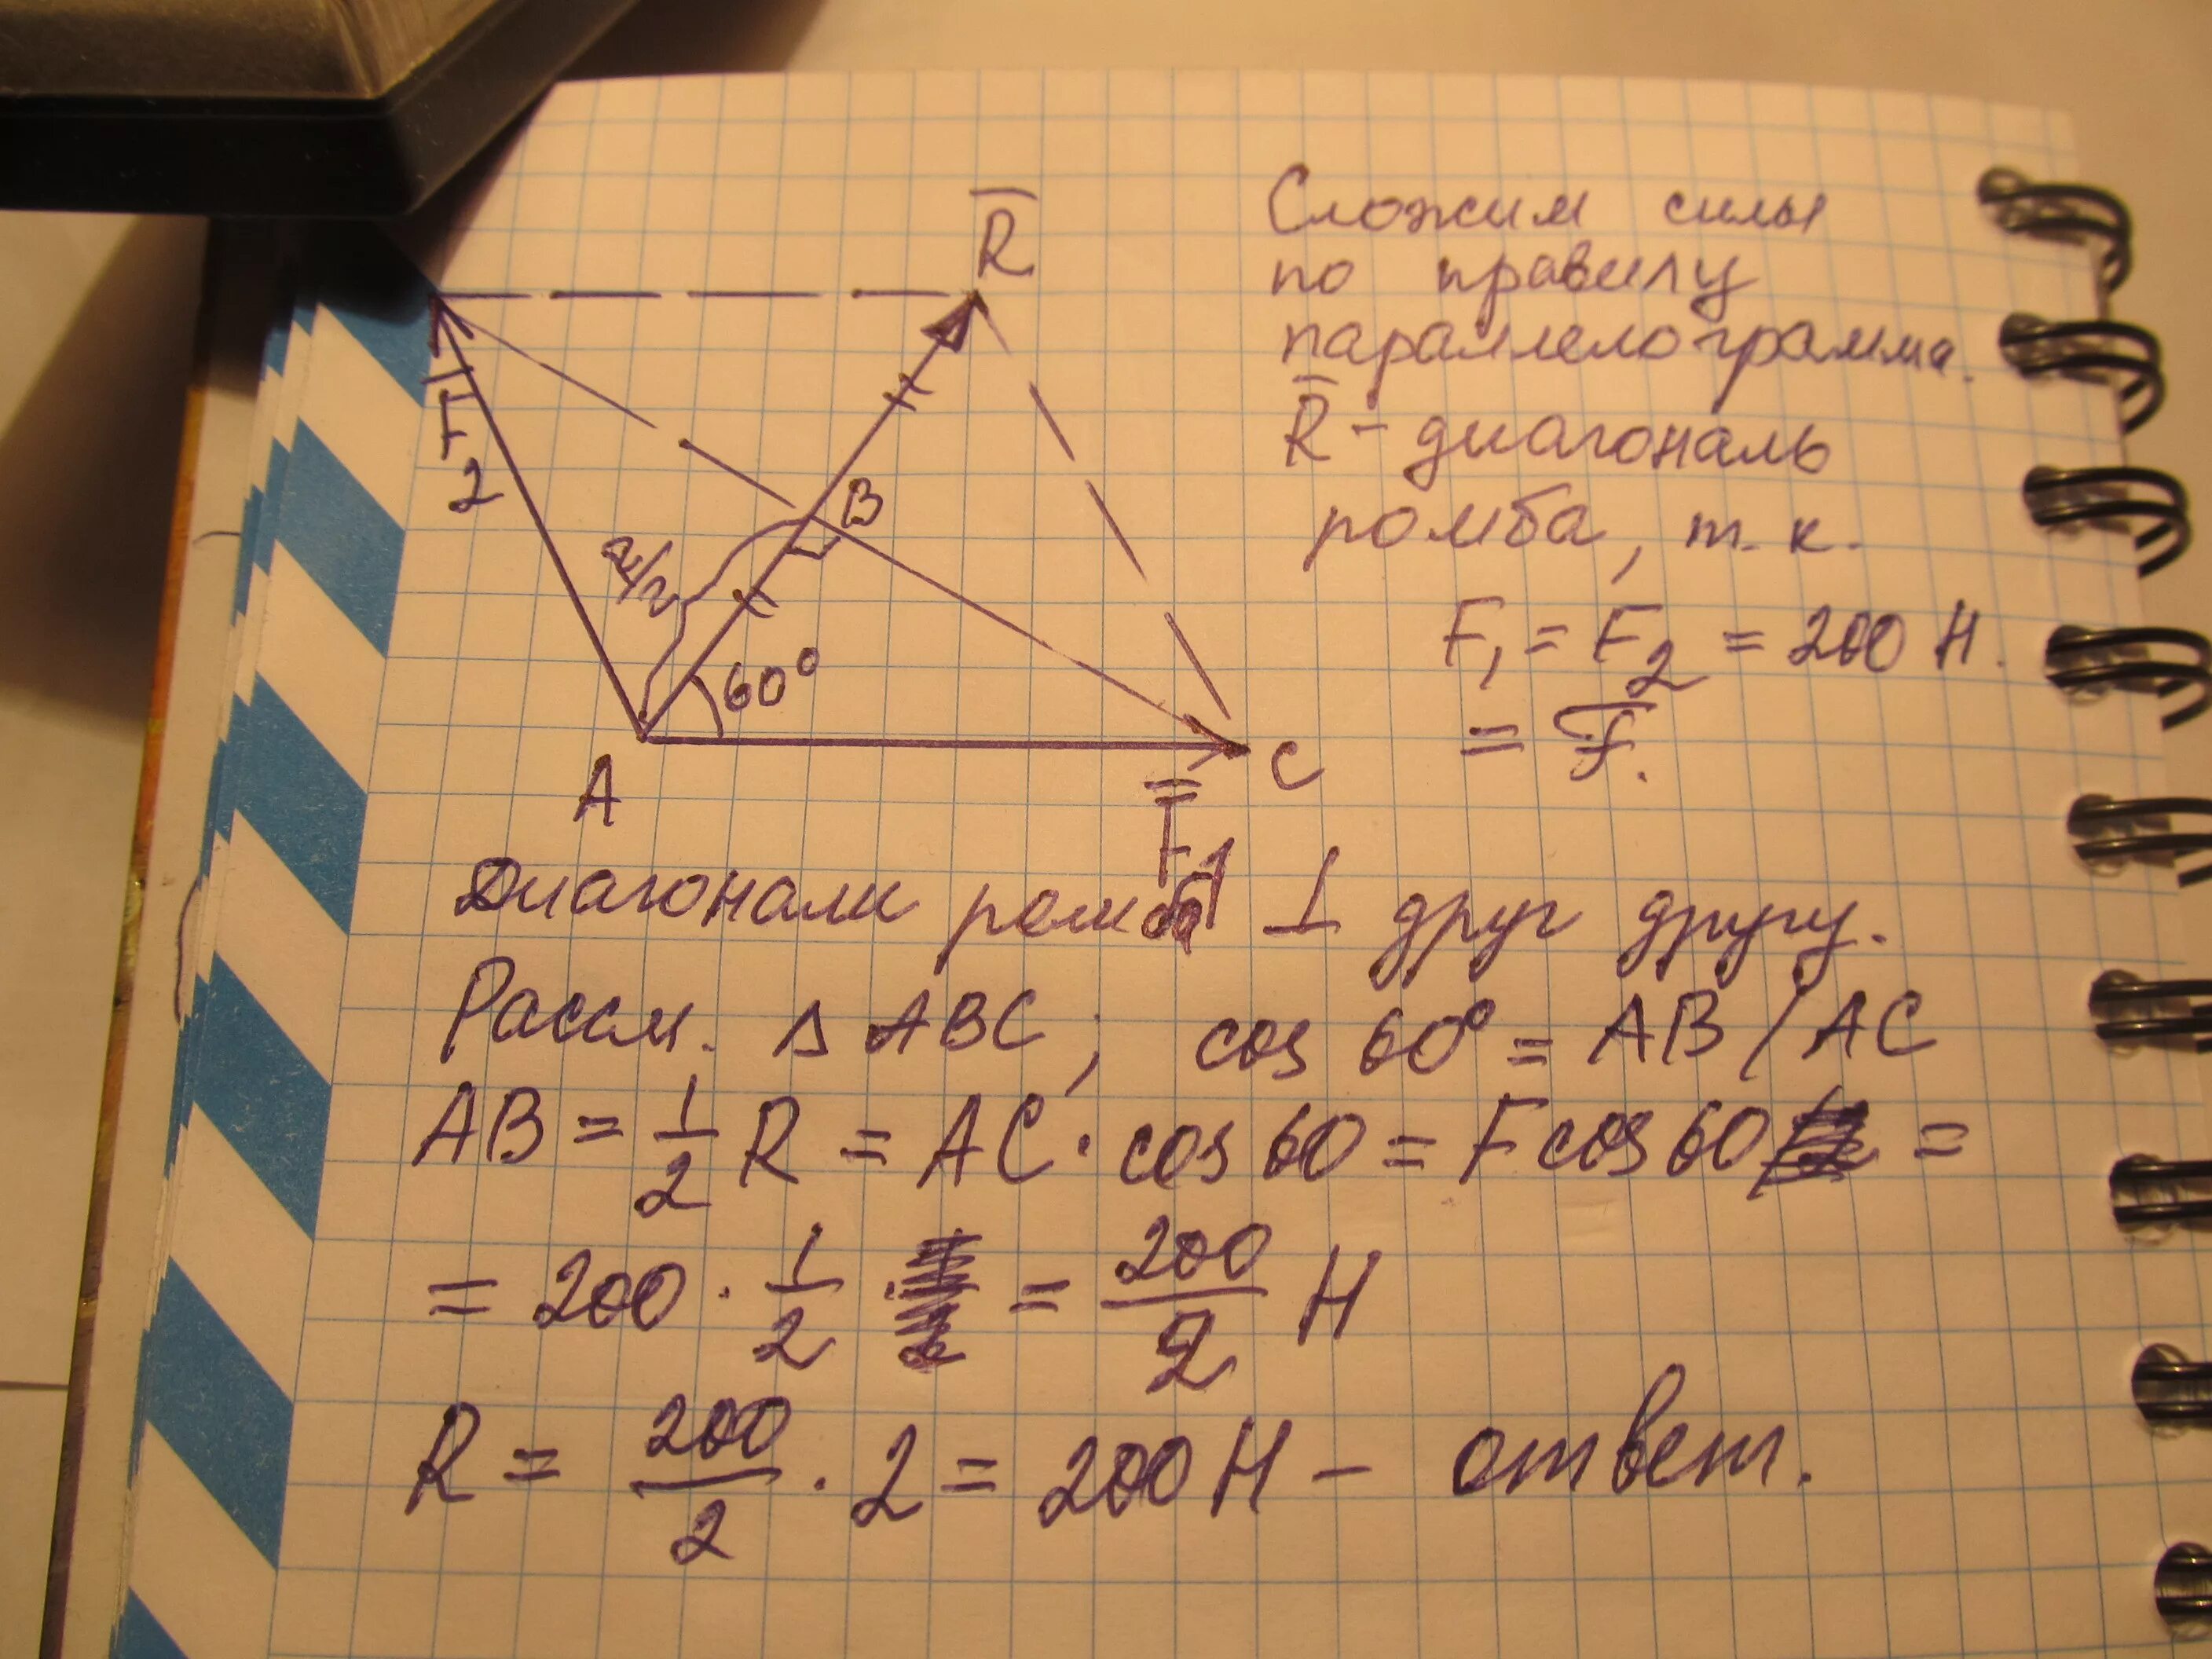 R̅
Сложим силы
по правилу
параллелограмма.
R̅ - диагональ
ромба, т.к.
F₁ = F₂ = 200 Н.
= F.
F̅
2
R/2
B
60°
A
C
F̅1
Диагонали ромба ⊥ друг другу.
Рассм. △ ABC; cos 60° = AB / AC
AB = 1/2 R = AC · cos 60 = F cos 60 =
= 200 · 1/2 = 200/2 Н
R = 200/2 · 2 = 200 Н - ответ.